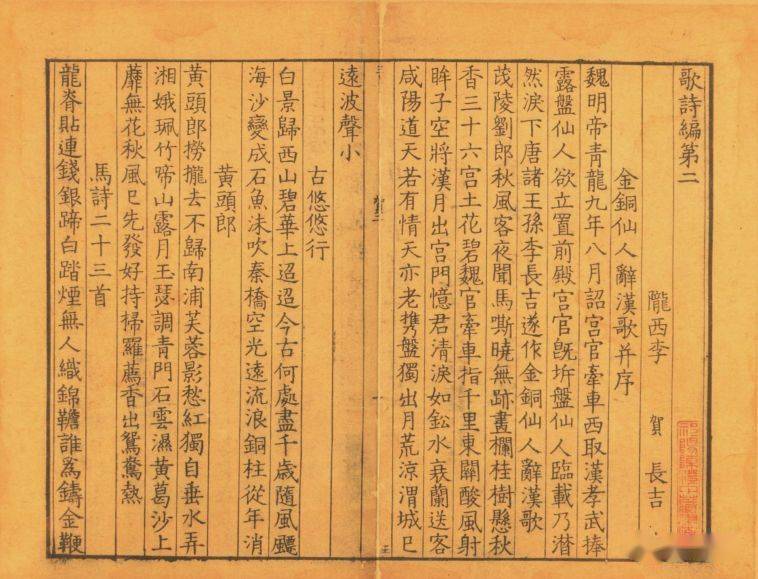 歌詩編第二
隴西李 賀 長吉
金銅仙人辭漢歌并序
魏明帝青龍九年八月詔宮官牽車西取漢孝武捧
露盤仙人欲立置前殿宮官旣坼盤仙人臨載乃潸
然淚下唐諸王孫李長吉遂作金銅仙人辭漢歌
茂陵劉郎秋風客夜聞馬嘶曉無跡畫欄桂樹懸秋
香三十六宮土花碧魏官牽車指千里東關酸風射
眸子空將漢月出宮門憶君清淚如鈆水衰蘭送客
咸陽道天若有情天亦老携盤獨出月荒涼渭城已
遠波聲小
古悠悠行
白景歸西山碧華上迢迢今古何處盡千歲隨風飄
海沙變成石魚沬吹秦橋空光遠流浪銅柱從年消
黃頭郎
黃頭郎撈攏去不歸南浦芙蓉影愁紅獨自垂水弄
湘娥珮竹啼山露月玉瑟調青門石雲濕黃葛沙上
蘼無花秋風已先發好持掃羅薦香出鴛鴦熱
馬詩二十三首
龍脊貼連錢銀蹄白踏煙無人織錦韂誰爲鑄金鞭